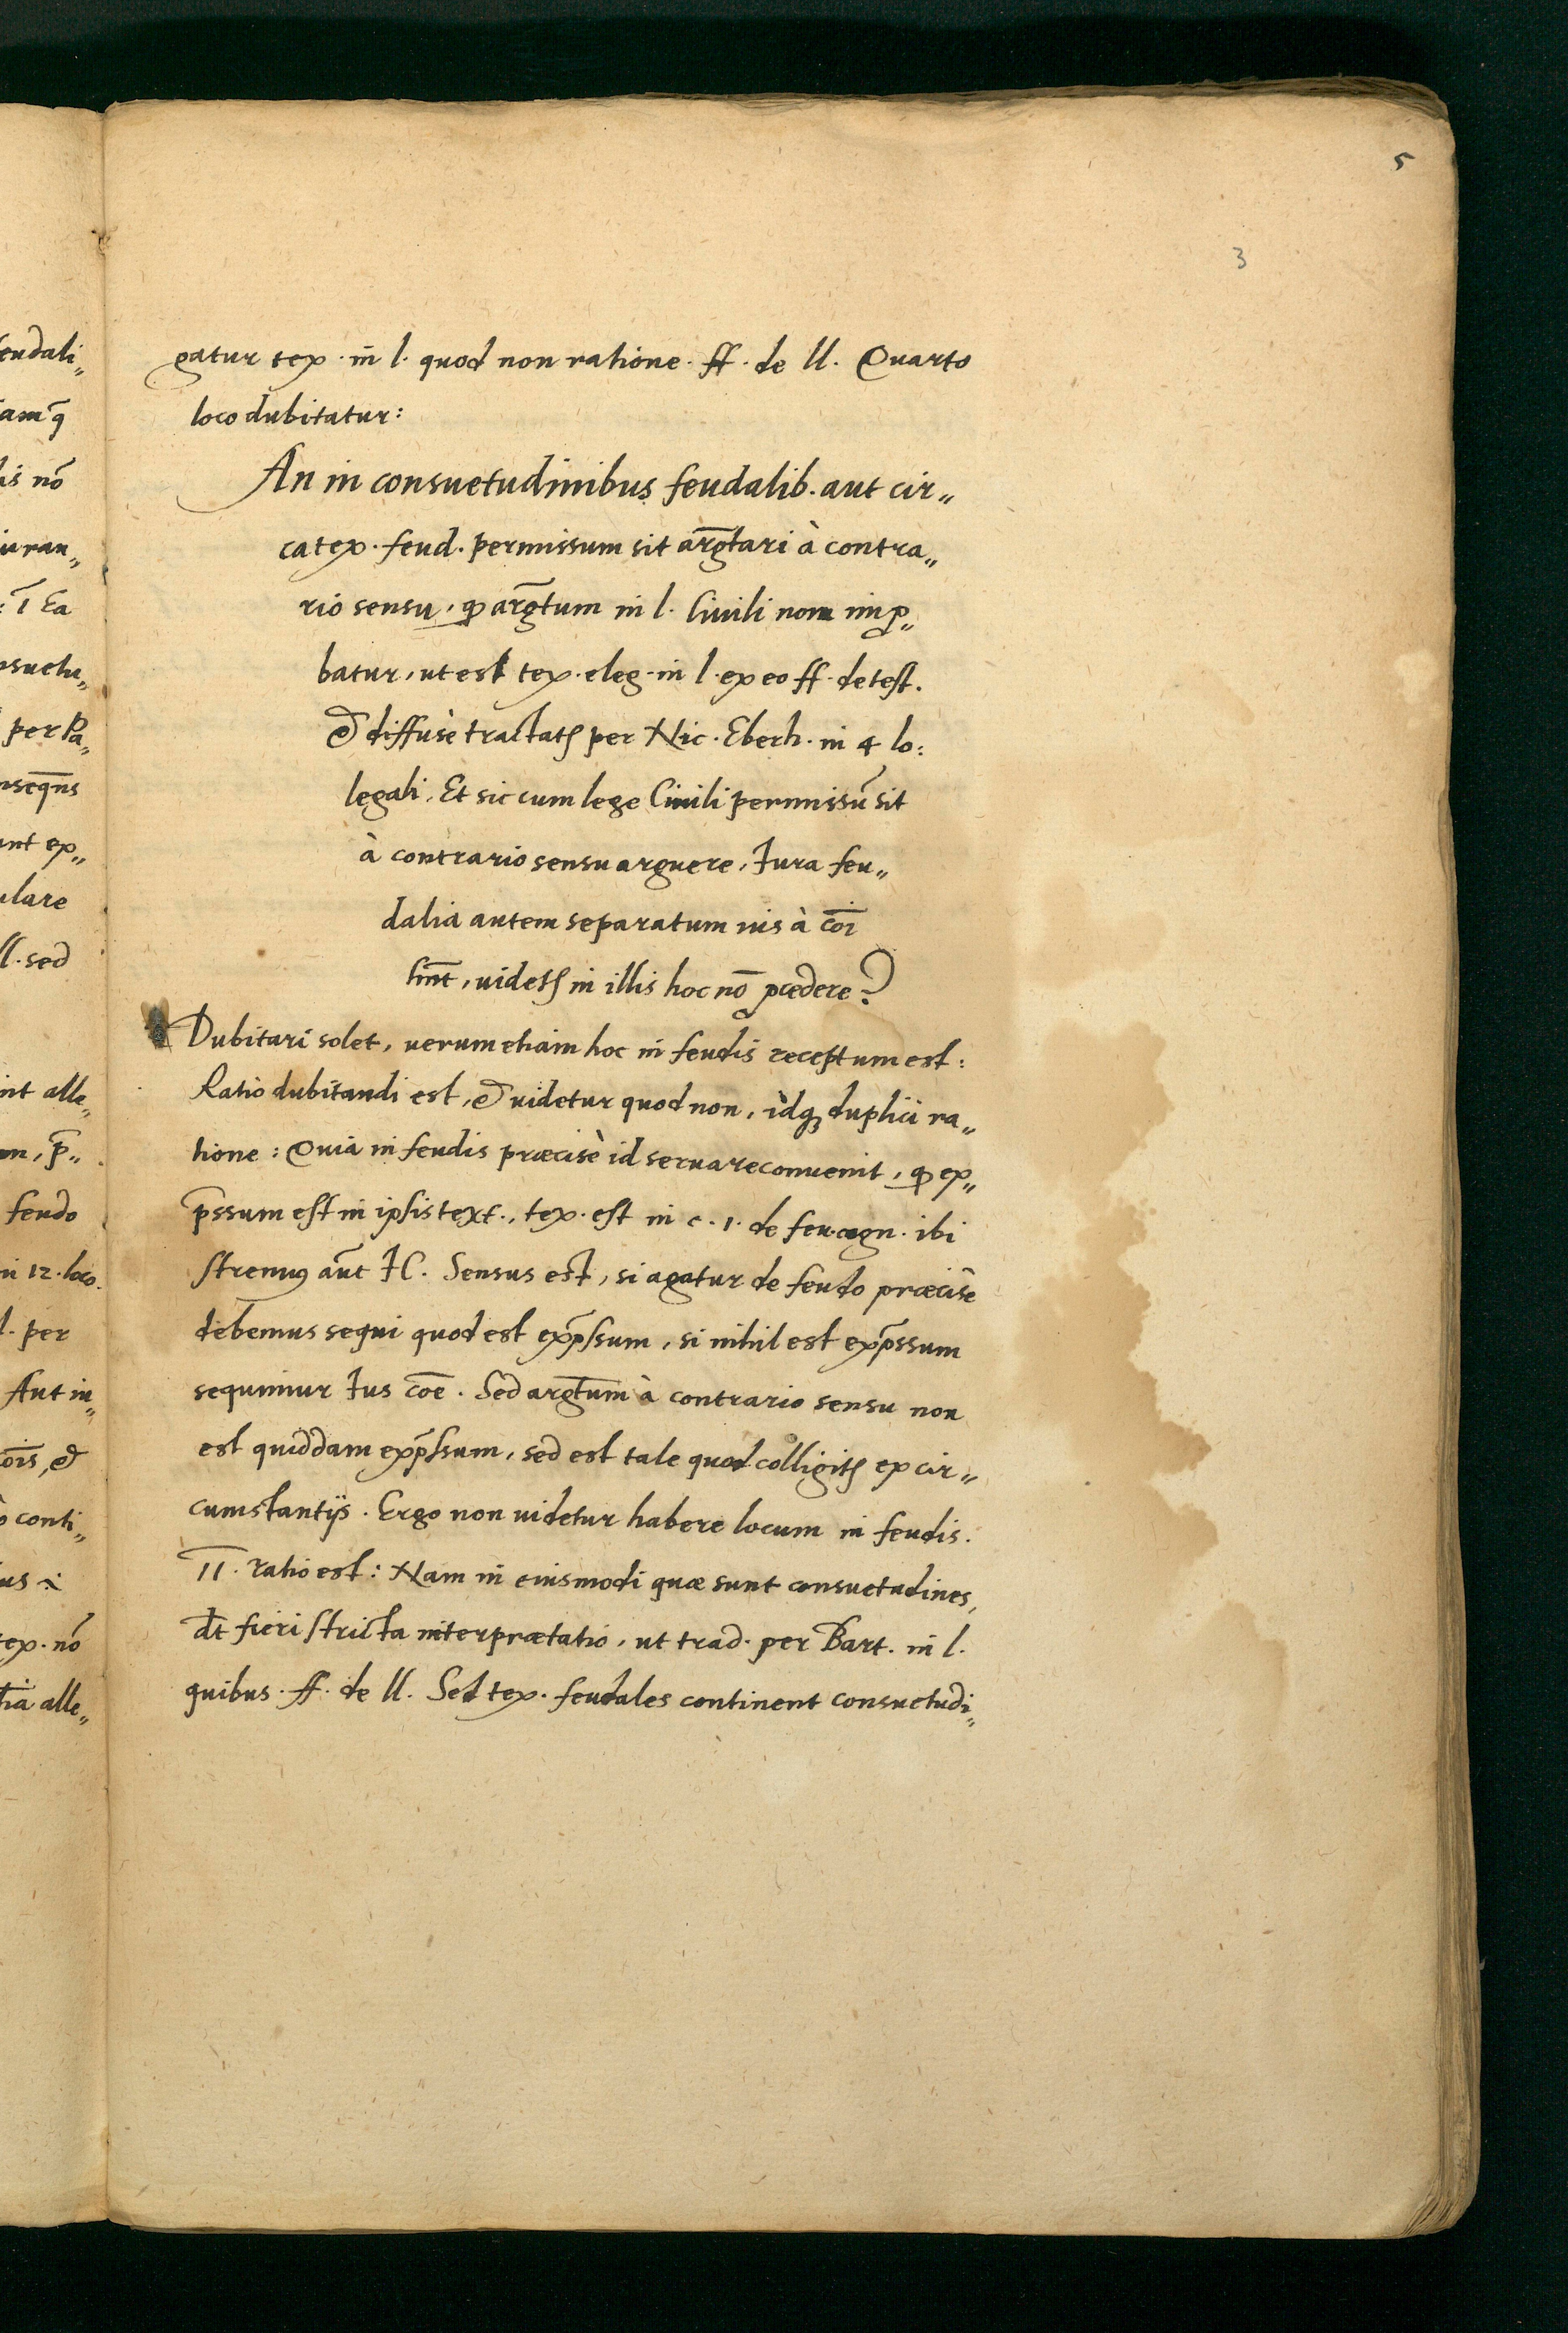 5
3
gatur tex. in l. quod non ratione. ff. de ll. Quarto
loco dubitatur:
An in consuetudinibus feudalib. aut cir„
ca tex. feud. permissum sit arḡtari à contra„
rio sensu, ꝙ arḡtum in l. Ciuili non imꝓ„
batur, ut est tex. eleg. in l. ex eo ff. de test.
& diffusè tractatꝭ per Nic. Eberh. in 4 lo:
legali. Et sic cum lege Ciuili permissū sit
à contrario sensu arguere, Iura feu„
dalia autem separatum ius à cōi
hn̄t, uidetꝭ in illis hoc nō ꝓcedere?
Dubitari solet, uerum etiam hoc in feudis receptum est:
Ratio dubitandi est, & uidetur quod non, idqꝫ duplici ra„
tione: Quia in feudis præcisè id seruare conuenit, ꝙ ex„
p̄ssum est in ipsis text., tex. est in c. 1. de feu. cogn. ibi
strenuꝰ aūt IC. Sensus est, si agatur de feudo præcisè
debemus sequi quod est exp̄ssum, si nihil est exp̄ssum
sequimur Ius cōe. Sed argt̄um à contrario sensu non
est quiddam exp̄ssum, sed est tale quod colligitꝭ ex cir„
cumstantijs. Ergo non uidetur habere locum in feudis.
II. ratio est: Nam in eiusmodi quæ sunt consuetudines,
dt̄ fieri stricta interprætatio, ut trad. per Bart. in l.
quibus. ff. de ll. Sed tex. feudales continent consuetudi„
eudali„
amq̄
is nō
iuran„
ī Ea
suetu„
per Pa„
nseq̄ns
unt ex„
ulare
ll. sed
int alle„
p̄„
feudo
in 12. loco.
l. per
Aut iu„
ōis, &
conti„
us
tex. nō
alle„